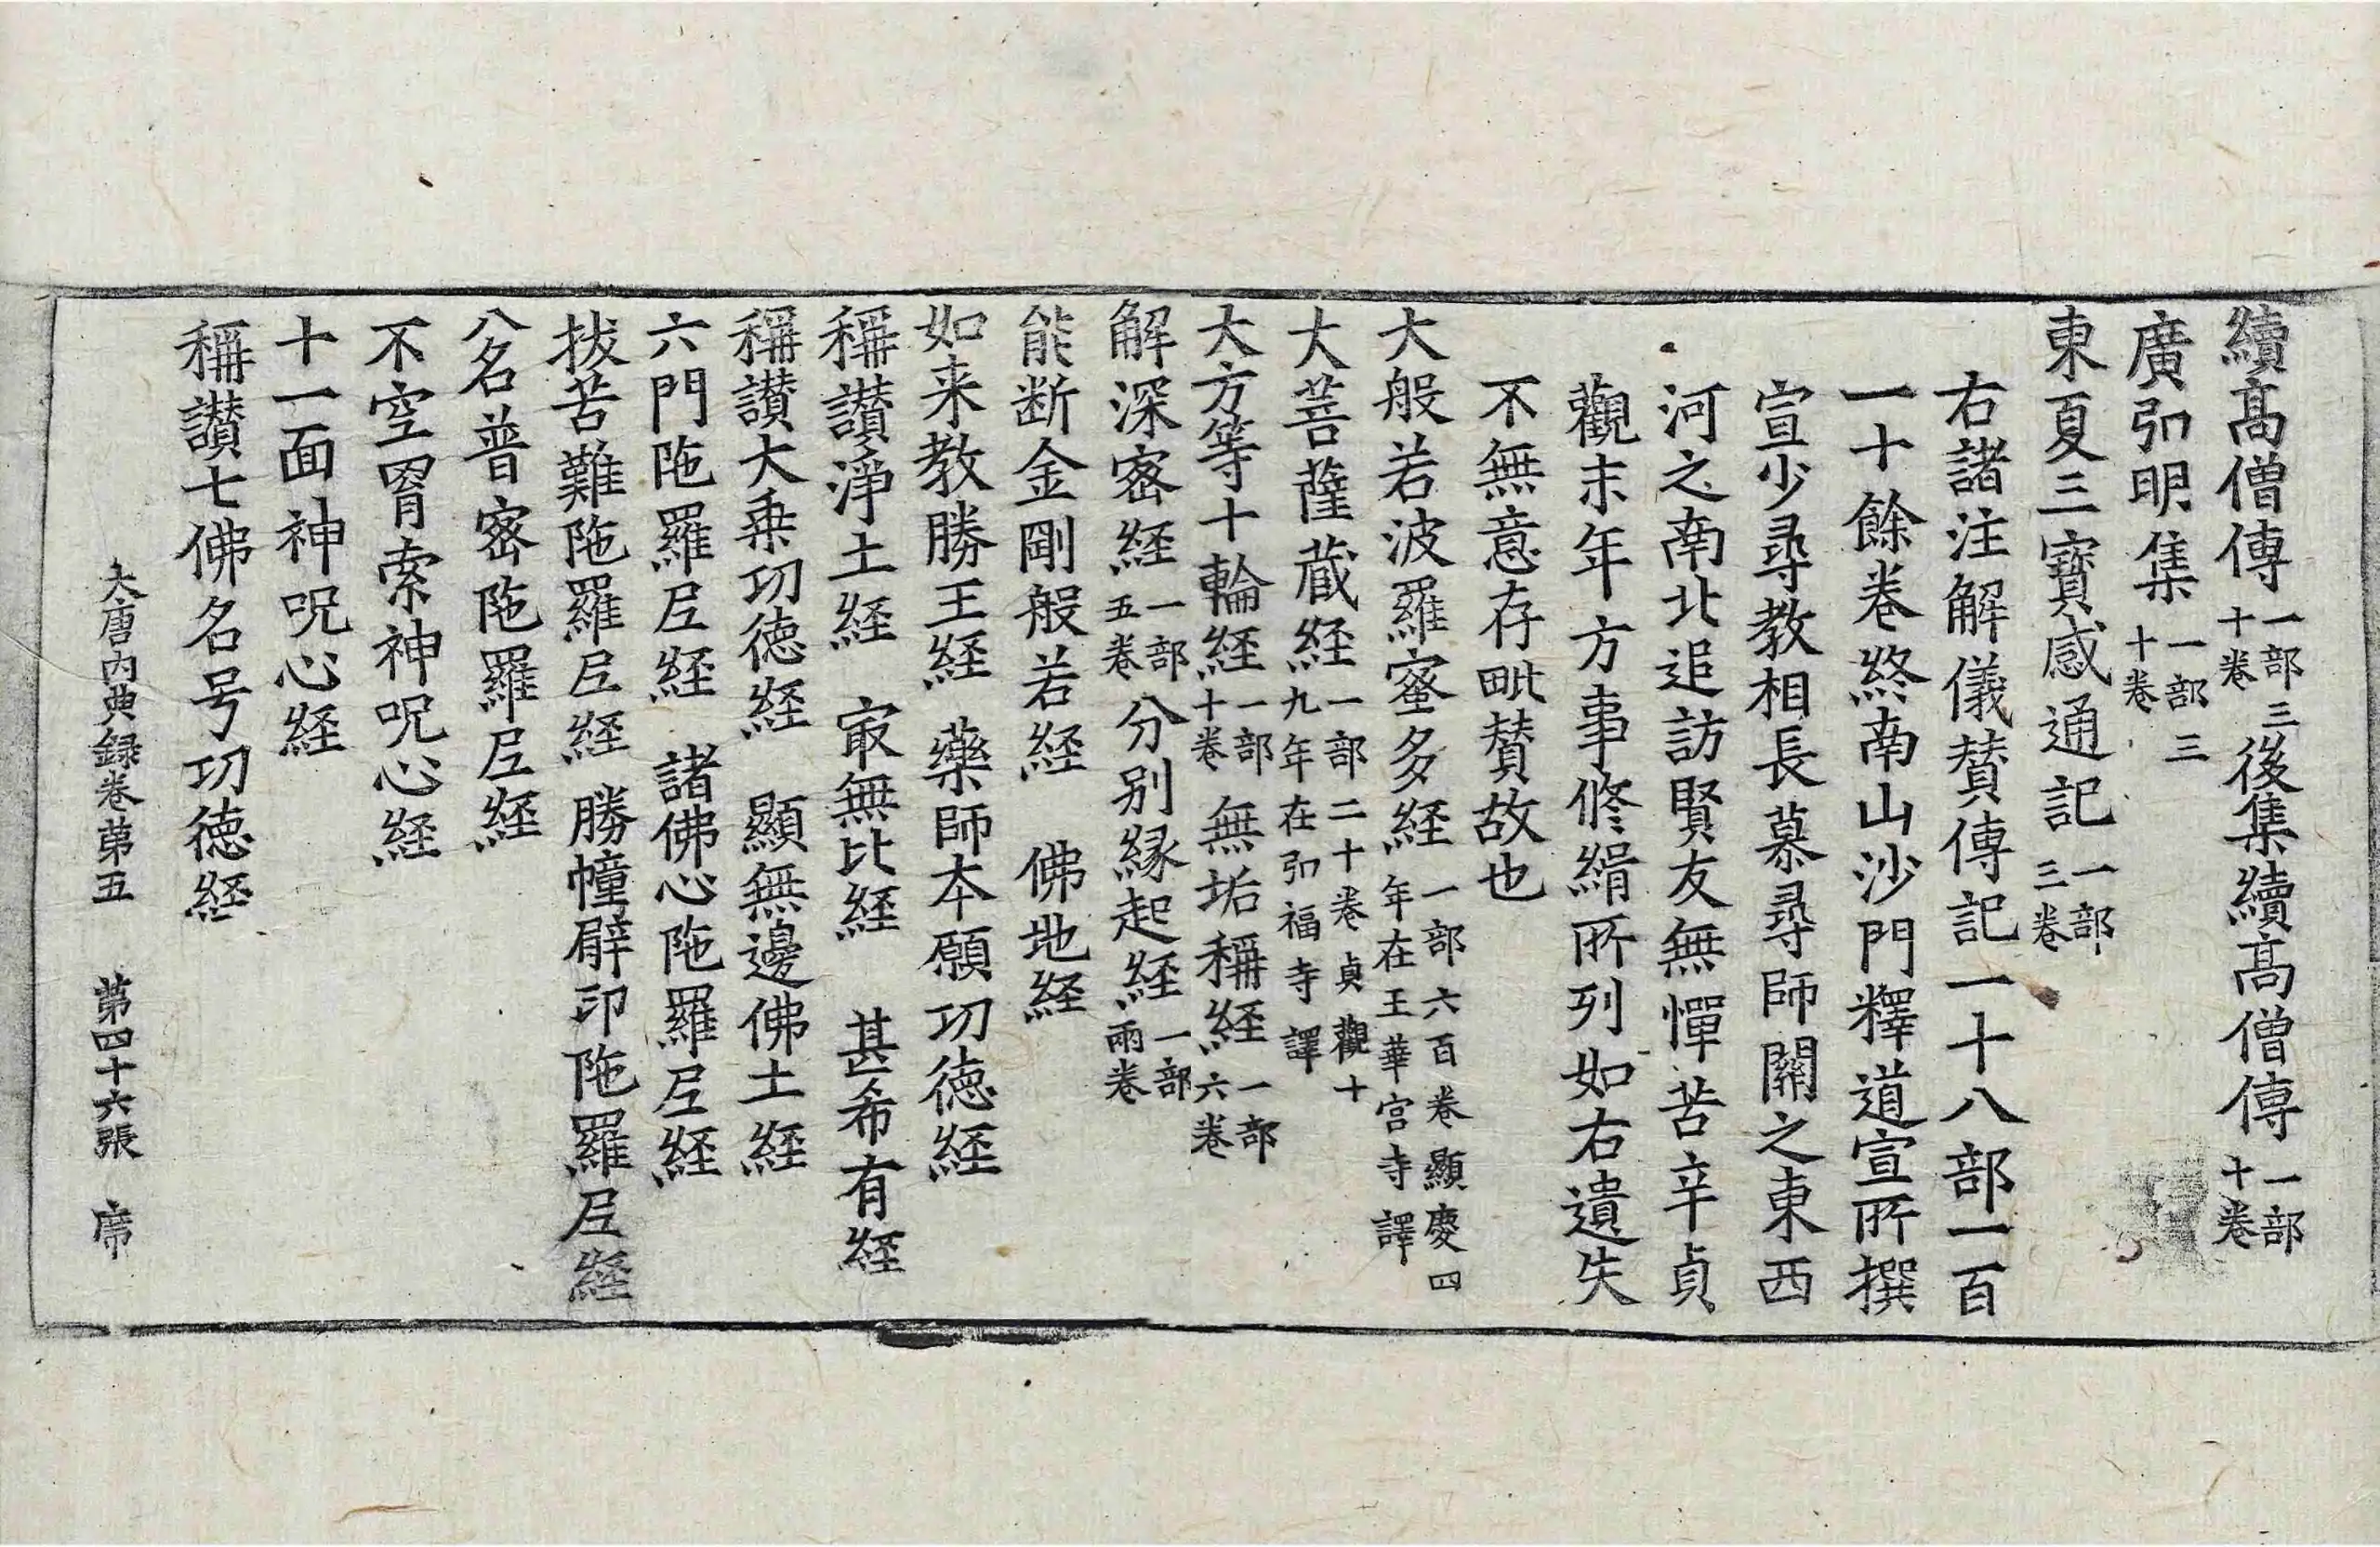 續髙僧傳一部三十卷後集續髙僧傳一部十卷
廣弘明集一部三十卷
東夏三寶感通記一部三卷
右諸注解儀賛傳記一十八部一百
一十餘卷終南山沙門釋道宣所撰
宣少尋教相長慕尋師關之東西
河之南北追訪賢友無憚苦辛貞
觀末年方事修緝所列如右遺失
不無意存毗賛故也
大般若波羅蜜多経一部六百卷顯慶四年在王華宫寺譯
大菩薩蔵経一部二十卷貞觀十九年在弘福寺譯
大方等十輪経一部十卷無垢稱経一部六卷
解深密経一部五卷分别縁起経一部兩卷
能断金剛般若経 佛地経
如来教勝王経 藥師本願功徳経
稱讃淨土経 㝡無比経 甚希有経
稱讃大乗功徳経 顯無邊佛土経
六門陁羅尼経 諸佛心陁羅尼経
拔苦難陁羅尼経 勝幢臂印陁羅尼経
八名普密陁羅尼経
不空罥索神呪心経
十一面神呪心経
稱讃七佛名号功徳経
大唐内典録卷苐五 苐四十六張 席